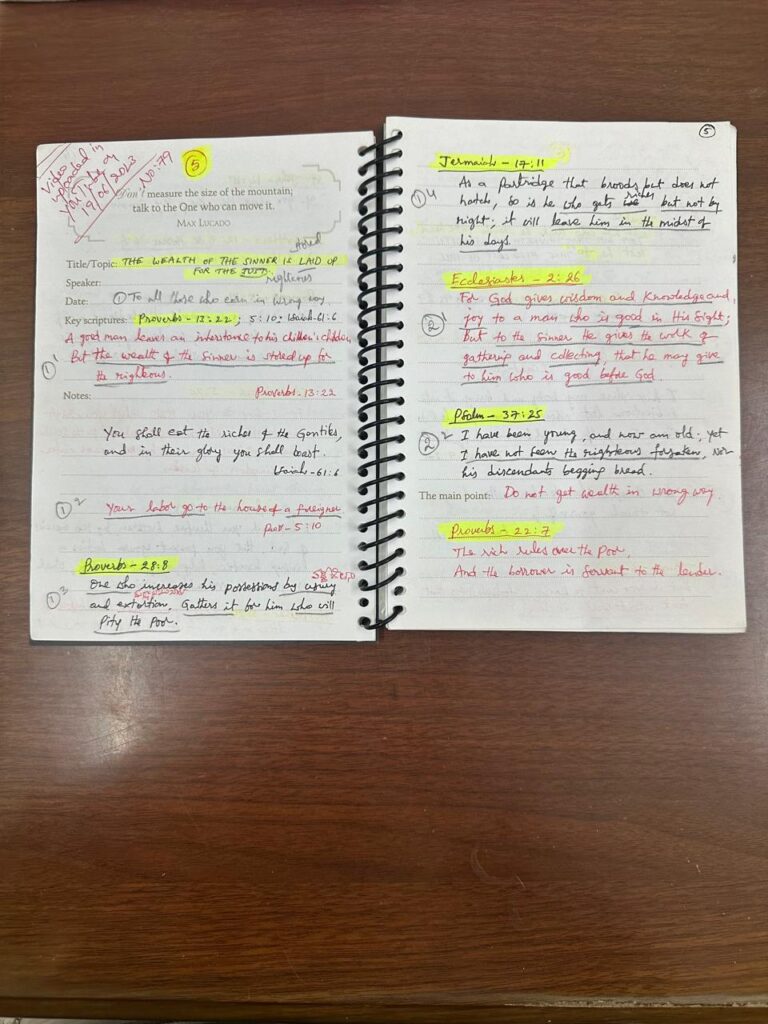 Video
uploaded in
You Tube on
19/06/2023
No:79
5
Don't measure the size of the mountain;
talk to the One who can move it.
Max Lucado
stored
Title/Topic: THE WEALTH OF THE SINNER IS LAID UP
FOR THE JUST.
righteous
Speaker:
Date: ① To all those who earn in wrong way
Key scriptures: Proverbs - 13:22; 5:10; Isaiah-61:6
A good man leaves an inheritance to his children's children
①1 But the wealth of the sinner is stored up for
the righteous.
Notes: Proverbs-13:22
You shall eat the riches of the Gentiles,
and in their glory you shall boast.
Isaiah-61:6
①2 Your labor go to the house of a foreigner
Prov-5:10
Proverbs-28:8
①3 One who increases his possessions by usury
and extortion, Gathers it for him who will
Pity the Poor.
5
Jermaiah - 17:11
①4 As a Partridge that broods but does not
hatch, So is he who gets riches but not by
right; it will leave him in the midst of
his days.
Ecclesiastes - 2:26
For God gives wisdom and knowledge and
②1 joy to a man who is good in His Sight;
but to the sinner He gives the work of
gathering and collecting, that he may give
to him who is good before God.
Psalm - 37:25
②2 I have been young, and now am old; yet
I have not seen the righteous forsaken, nor
his discendants begging bread.
The main point: Do not get wealth in wrong way.
Proverbs - 22:7
The rich rules over the Poor,
And the borrower is servant to the lender.